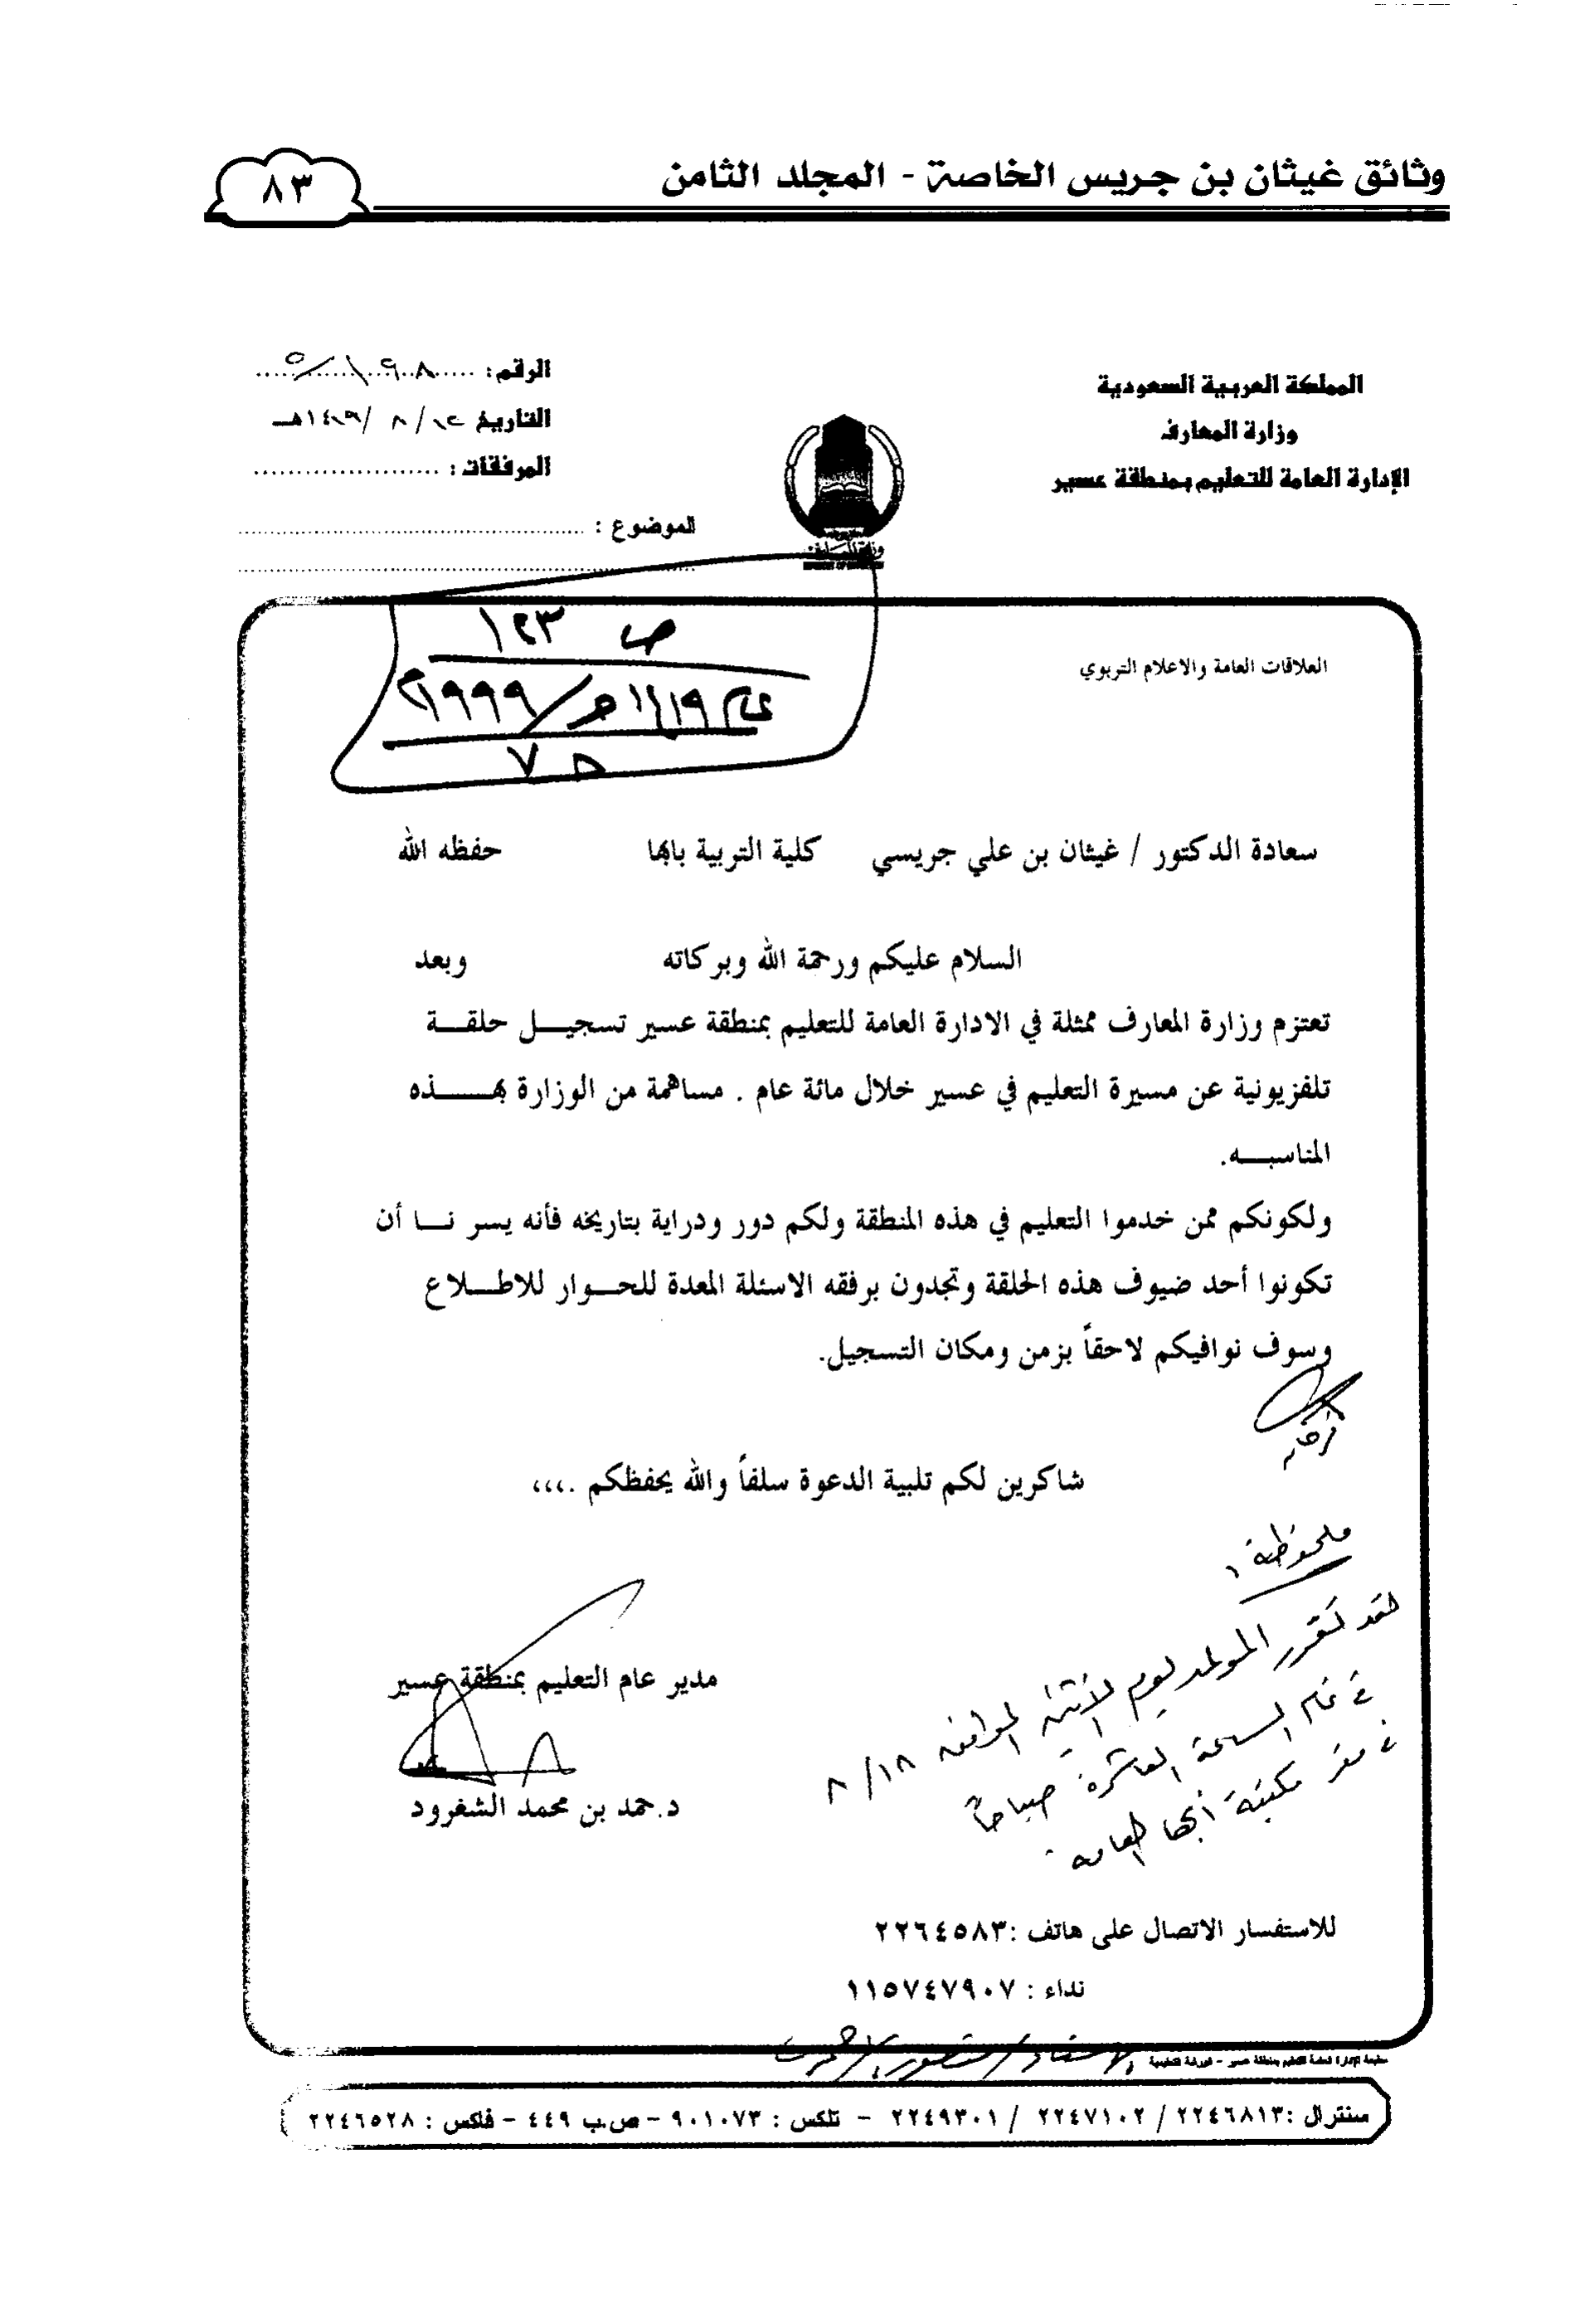 وثائق غيثان بن جريس الخاصة - المجلد الثامن
٨٣
المملكة العربية السعودية
وزارة المعارف
الإدارة العامة للتعليم بمنطقة عسير
الرقم :
التاريخ / ٨ / ١٤١٩هـ
المرفقات :
الموضوع :
ص ١٢٣
عام ١٤١٩هـ / ١٩٩٩م
حـ ٧
العلاقات العامة والاعلام التربوي
سعادة الدكتور / غيثان بن علي جريسي كلية التربية بابها حفظه الله
السلام عليكم ورحمة الله وبركاته وبعد
تعتزم وزارة المعارف ممثلة في الادارة العامة للتعليم بمنطقة عسير تسجيل حلقة
تلفزيونية عن مسيرة التعليم في عسير خلال مائة عام . مساهمة من الوزارة بهذه
المناسبه.
ولكونكم ممن خدموا التعليم في هذه المنطقة ولكم دور ودراية بتاريخه فأنه يسر نا أن
تكونوا أحد ضيوف هذه الحلقة وتجدون برفقه الاسئلة المعدة للحوار للاطلاع
وسوف نوافيكم لاحقاً بزمن ومكان التسجيل.
شاكرين لكم تلبية الدعوة سلفاً والله يحفظكم .،،،
ملحوظة :
لقد تقرر الموعد يوم الأثنين الموافق ٨/١٨
في تمام الساعة العاشرة صباحاً
في مقر مكتبة أبها العامة .
مدير عام التعليم بمنطقة عسير
د.حمد بن محمد الشغرود
للاستفسار الاتصال على هاتف :٢٢٦٤٥٨٣
نداء : ١١٥٧٤٧٩٠٧
سنترال :٢٢٤٦٨١٣ / ٢٢٤٧١٠٢ / ٢٢٤٩٣٠١ - تلكس : ٩٠١٠٧٣ - ص.ب ٤٤٩ - فاكس : ٢٢٤٦٥٢٨